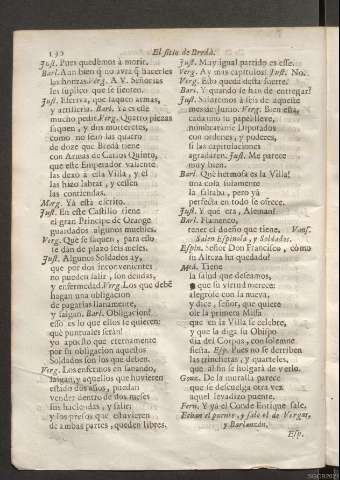 190
El sitio de Bredà.
Just. Pues quedemos à morir.
Barl. Aun bien q̃ no avrà q̃ hacerles
las honras. Verg. A V. Señorias
les suplico que se sienten.
Just. Escriva, que saquen armas,
y artilleria. Barl. Ya es esse
mucho pedir. Verg. Quatro piezas
saquen, y dos morteretes,
como no sean las quatro
de doze que Bredà tiene
con Armas de Carlos Quinto,
que este Emperador valiente
las dexò à esta Villa, y el
las hizo labrar, y cessen
las contiendas.
Morg. Yà està escrito.
Just. En este Castillo tiene
el gran Principe de Orange
guardados algunos muebles.
Verg. Que se saquen, para ello
te dàn de plazo seis meses.
Just. Algunos Soldados ay,
que por dos inconvenientes
no pueden salir, son deudas,
y enfermedad. Verg. Los que debẽ
hagan una obligacion
de pagarlas llanamente,
y salgan. Barl. Obligacion?
esso es lo que ellos se quieren:
què puntuales seràn!
yo apostè que eternamente
por su obligacion aquellos
Soldados son los que deben.
Verg. Los enfermos en sanando,
salgan, y aquellos que huvieren
estado dudosos, puedan
vender dentro de dos meses
sus haciendas, y salir:
y los presos que estuvieren
de ambas partes, queden libres.
Just. Muy igual partido es esse.
Verg. Ay mas capitulos? Just. No.
Verg. Esto queda desta suerte.
Barl. Y quando se han de entregar?
Just. Saldremos à seis de aqueste
mes de Junio. Verg. Bien està,
cada uno su papel lleve,
nombraranse Diputados
con ordenes, y poderes,
si las capitulaciones
agradaren. Just. Me parece
muy bien.
Barl. Què hermosa es la Villa!
una cosa solamente
la faltaba, pero yà
perfecta en todo se ofrece.
Just. Y què era, Alemàn?
Barl. Flamenco,
tener el dueño que tiene. Vans.
Salen Espinola, y Soldados.
Espin. Señor Don Francisco, còmo
su Alteza ha quedado?
Med. Tiene
la salud que deseamos,
y que su virtud merece:
alegròle con la nueva,
y dice, señor, que quiere
oìr la primera Missa
que en la Villa se celebre,
y que la diga su Obispo
dia del Corpus, con solemne
fiesta. Esp. Pues no se derriben
las trincheras, y quarteles,
que alli se holgarà de verlo.
Gonz. De la muralla parece
que se descuelga otra vez
aquel levadizo puente.
Fern. Y yà el Conde Enrique sale.
Echan el puente, y sale el de Vergas,
y Barlanzòn.
Esp.